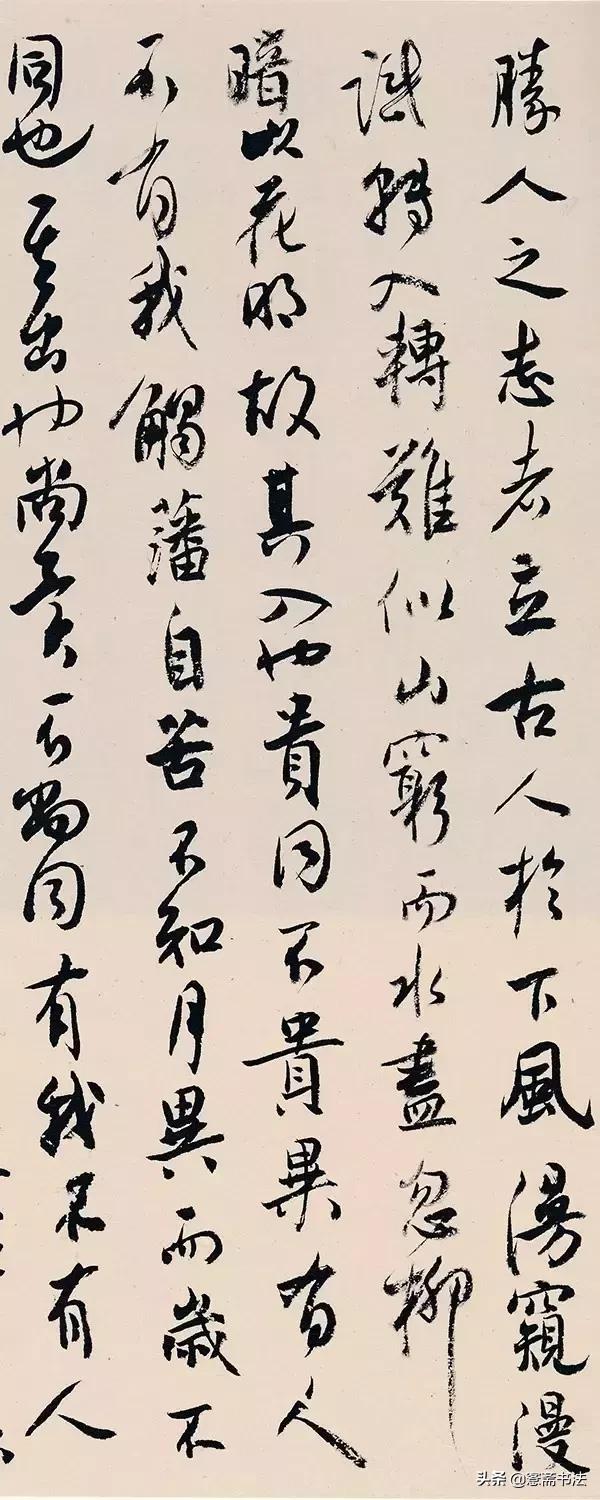 勝人之志者立古人於下風窺漫
識轉入轉難似山窮而水盡忽柳
暗以花明故其入也貴同不貴異有人
不有我觸藩自苦不知月異而歲不
同也其出也尚異不尚同有我不有人
头条 @憲斋书法